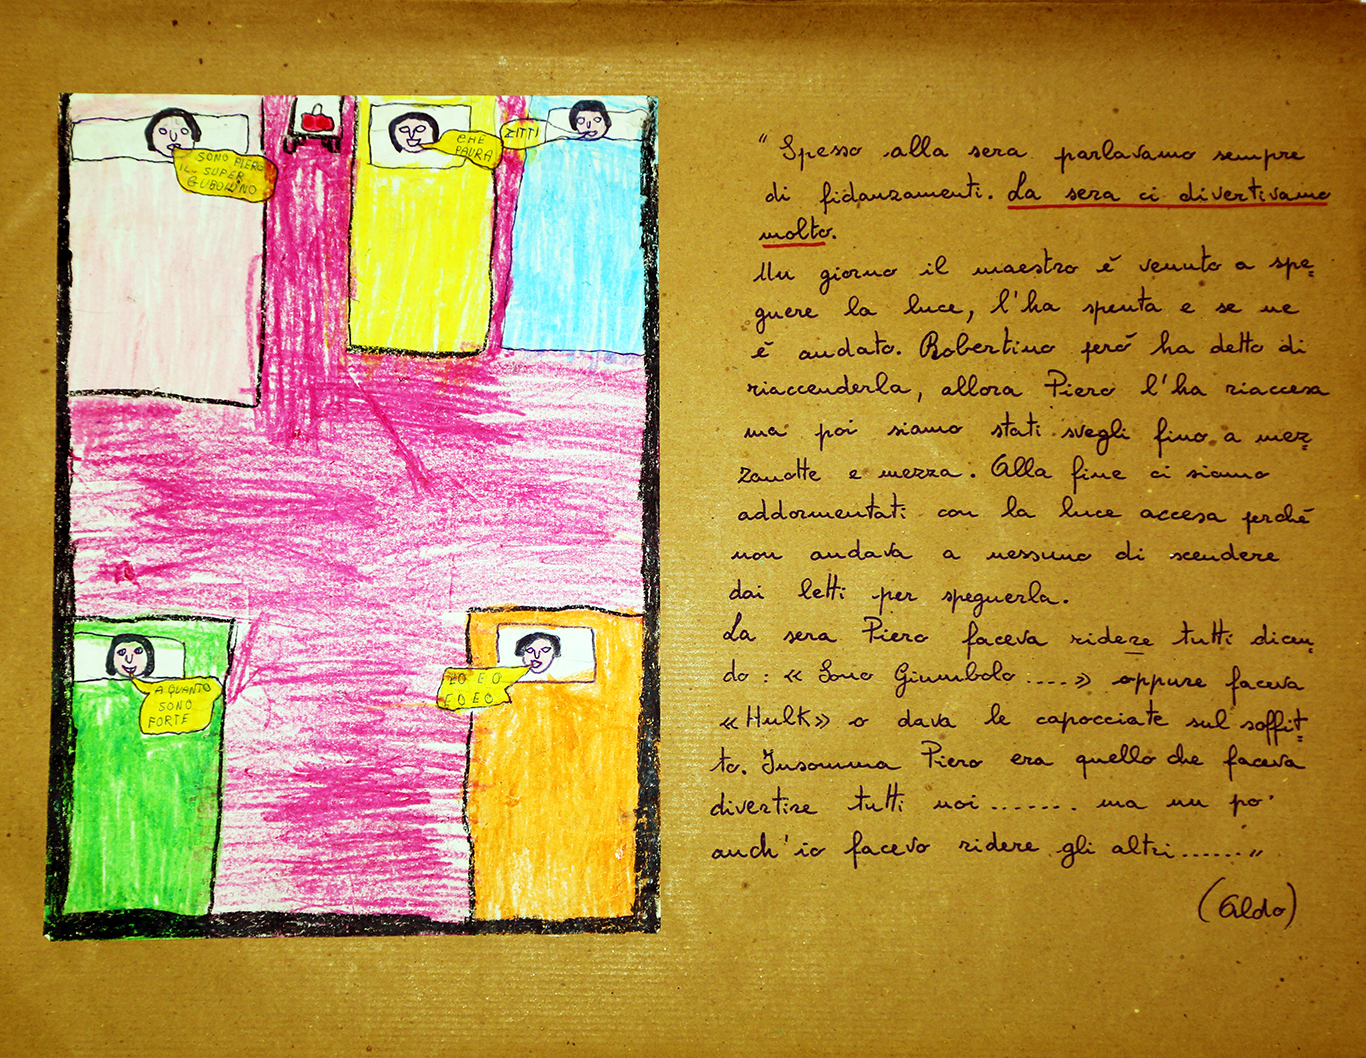 SONO PIERO
IL SUPER
GUBOLINO
CHE
PAURA
ZITTI
A QUANTO
SONO
FORTE
EO EO
EO EO
" Spesso alla sera parlavamo sempre
di fidanzamenti. La sera ci divertivamo
molto.
Un giorno il maestro é venuto a spe=
gnere la luce, l'ha spenta e se ne
é andato. Robertino peró ha detto di
riaccenderla, allora Piero l'ha riaccesa
ma poi siamo stati svegli fino a mez=
zanotte e mezza. Alla fine ci siamo
addormentati con la luce accesa perché
non andava a nessuno di scendere
dai letti per spegnerla.
La sera Piero faceva ridere tutti dicen=
do : « Sono Giumbolo .....» oppure faceva
«Hulk» o dava le capocciate sul soffit=
to. Insomma Piero era quello che faceva
divertire tutti noi ........ ma un po'
anch'io facevo ridere gli altri......."
(Aldo)